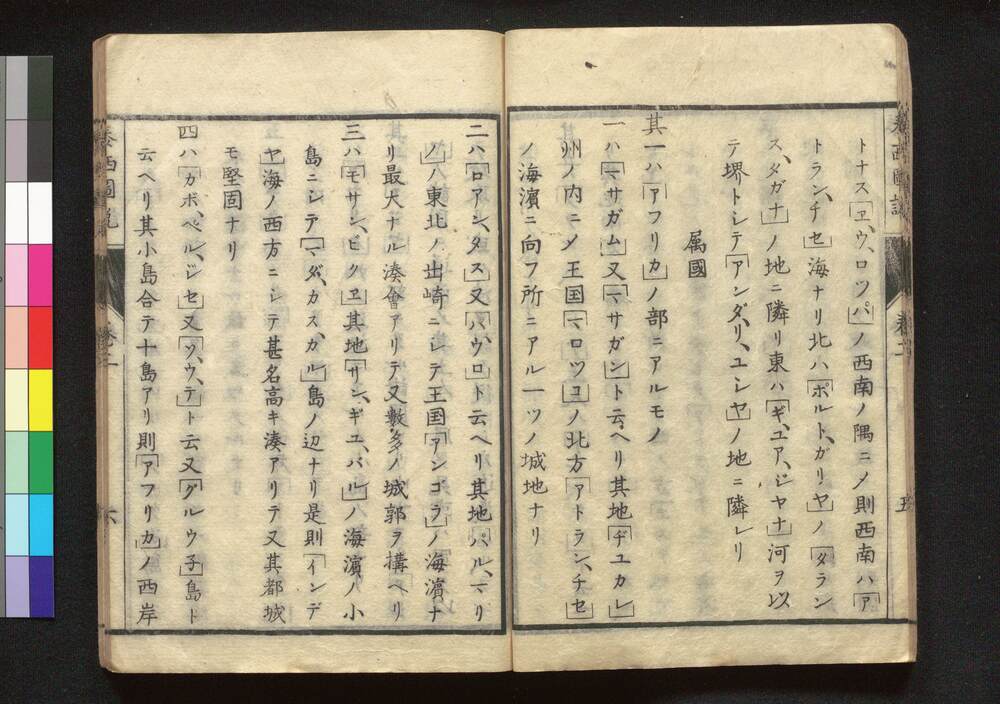 トナス「ヱ、ウ、ロツパ」ノ西南ノ隅ニメ則西南ハ「ア
トラン、チセ」海ナリ北ハ「ポルト、ガリ、ヤ」ノ「タラン
ス、タガナ」ノ地ニ隣リ東ハ「ギ、ユア、ジヤナ」河ヲ以
テ堺トシテ「アンダ、リ、ユシヤ」ノ地ニ隣レリ
属國
其一ハ「アフリカ」ノ部ニアルモノ
一ハ「マサガム」又「マサガント」云ヘリ其地「ヂユカレ」
州ノ内ニメ王国「マロツヨ」ノ北方「アトラン、チセ」
ノ海濱ニ向フ所ニアル一ツノ城地ナリ
二ハ「ロアン、タス」又「ハ、ウロ」ト云ヘリ其地「パル、マリ
ノ」ハ東北ノ出崎ニシテ王国「アンゴラ」ノ海濱ナ
リ最大ナル湊會アリテ又數多ノ城郭ヲ搆ヘリ
三ハ「モサン、ビクヱ」其地「サン、ギユ、バル」ノ海濱ノ小
島ニシテ「マダ、カス、カル」島ノ辺ナリ是則「インデ
ヤ」海ノ西方ニシテ甚名高キ湊アリテ又其都城
モ堅固ナリ
四ハ「カボ、ベル、ジセ」又「ソ、ウ、テ」ト云又「グルウ子」島ト
云ヘリ其小島合テ十島アリ則「アフリカ」ノ西岸
泰西圖説
卷二
五
泰西圖説
卷二
六